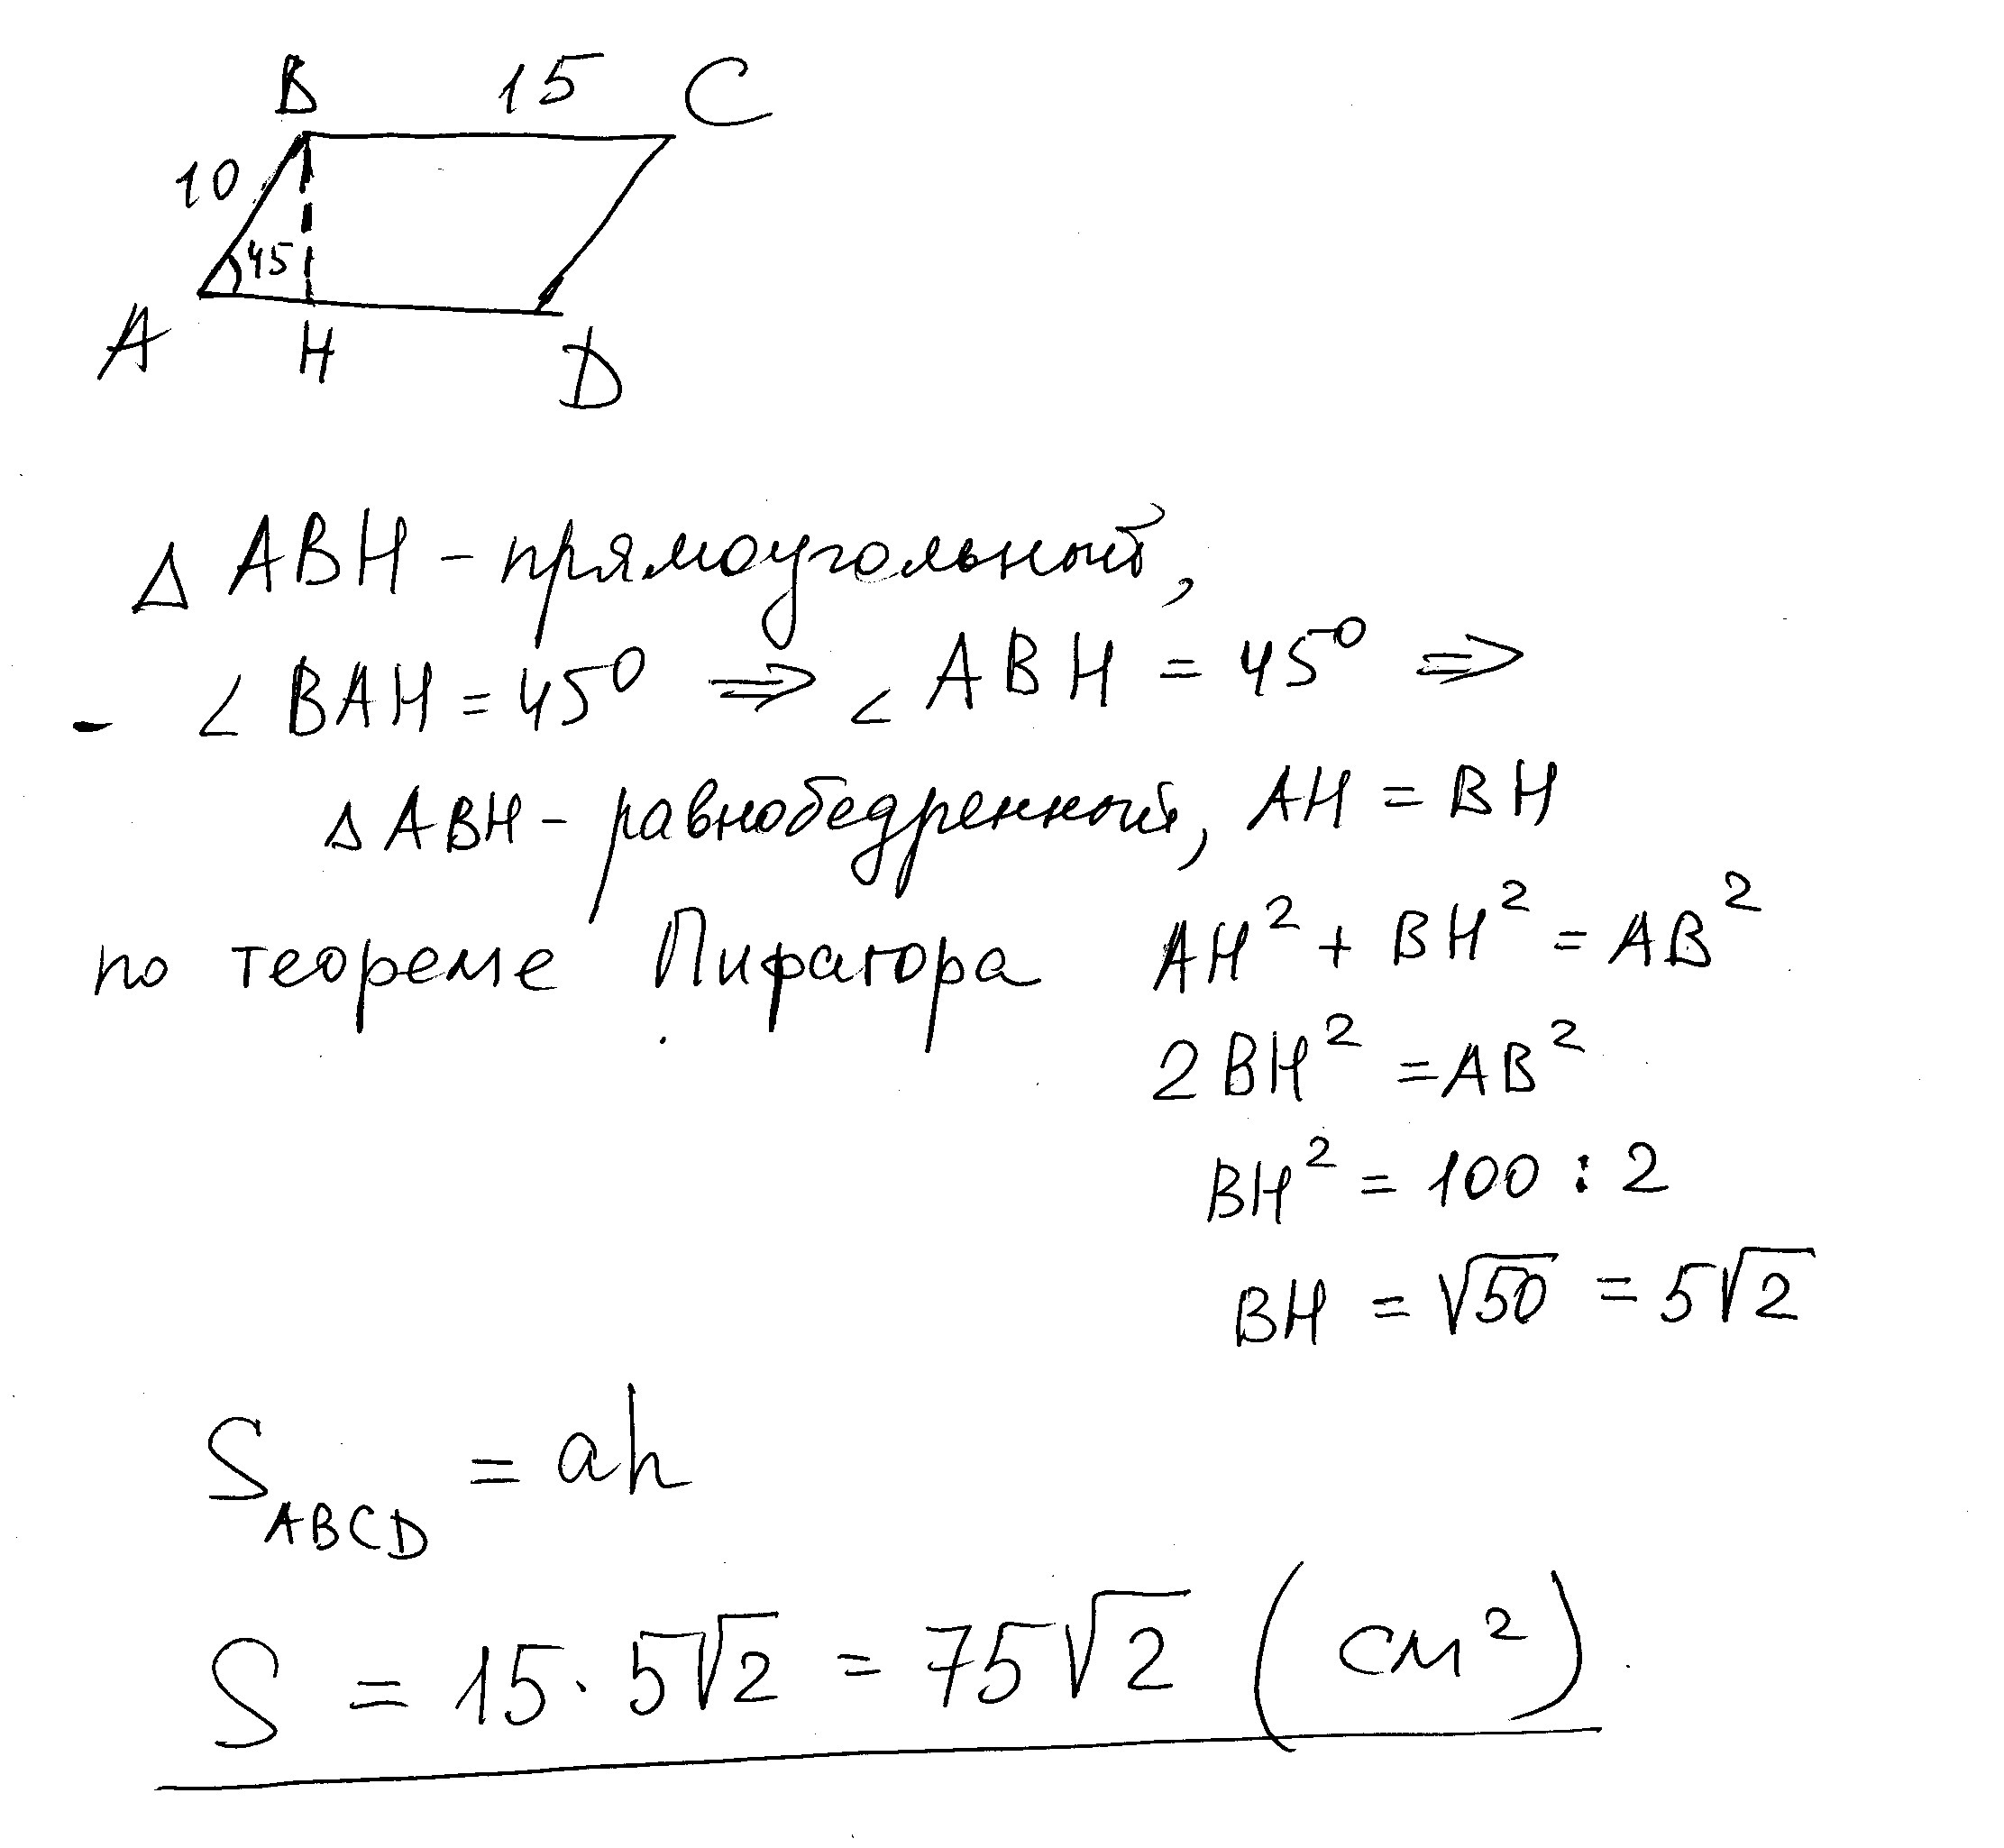 B 15 C
10
45
A H D
Δ ABH - прямоугольный,
- ∠ BAH = 45⁰ ⇒ ∠ ABH = 45⁰ ⇒
Δ ABH - равнобедренный, AH = BH
по теореме Пифагора AH² + BH² = AB²
2BH² = AB²
BH² = 100 : 2
BH = √50 = 5√2
S_ABCD = ah
S = 15 · 5√2 = 75√2 (см²).